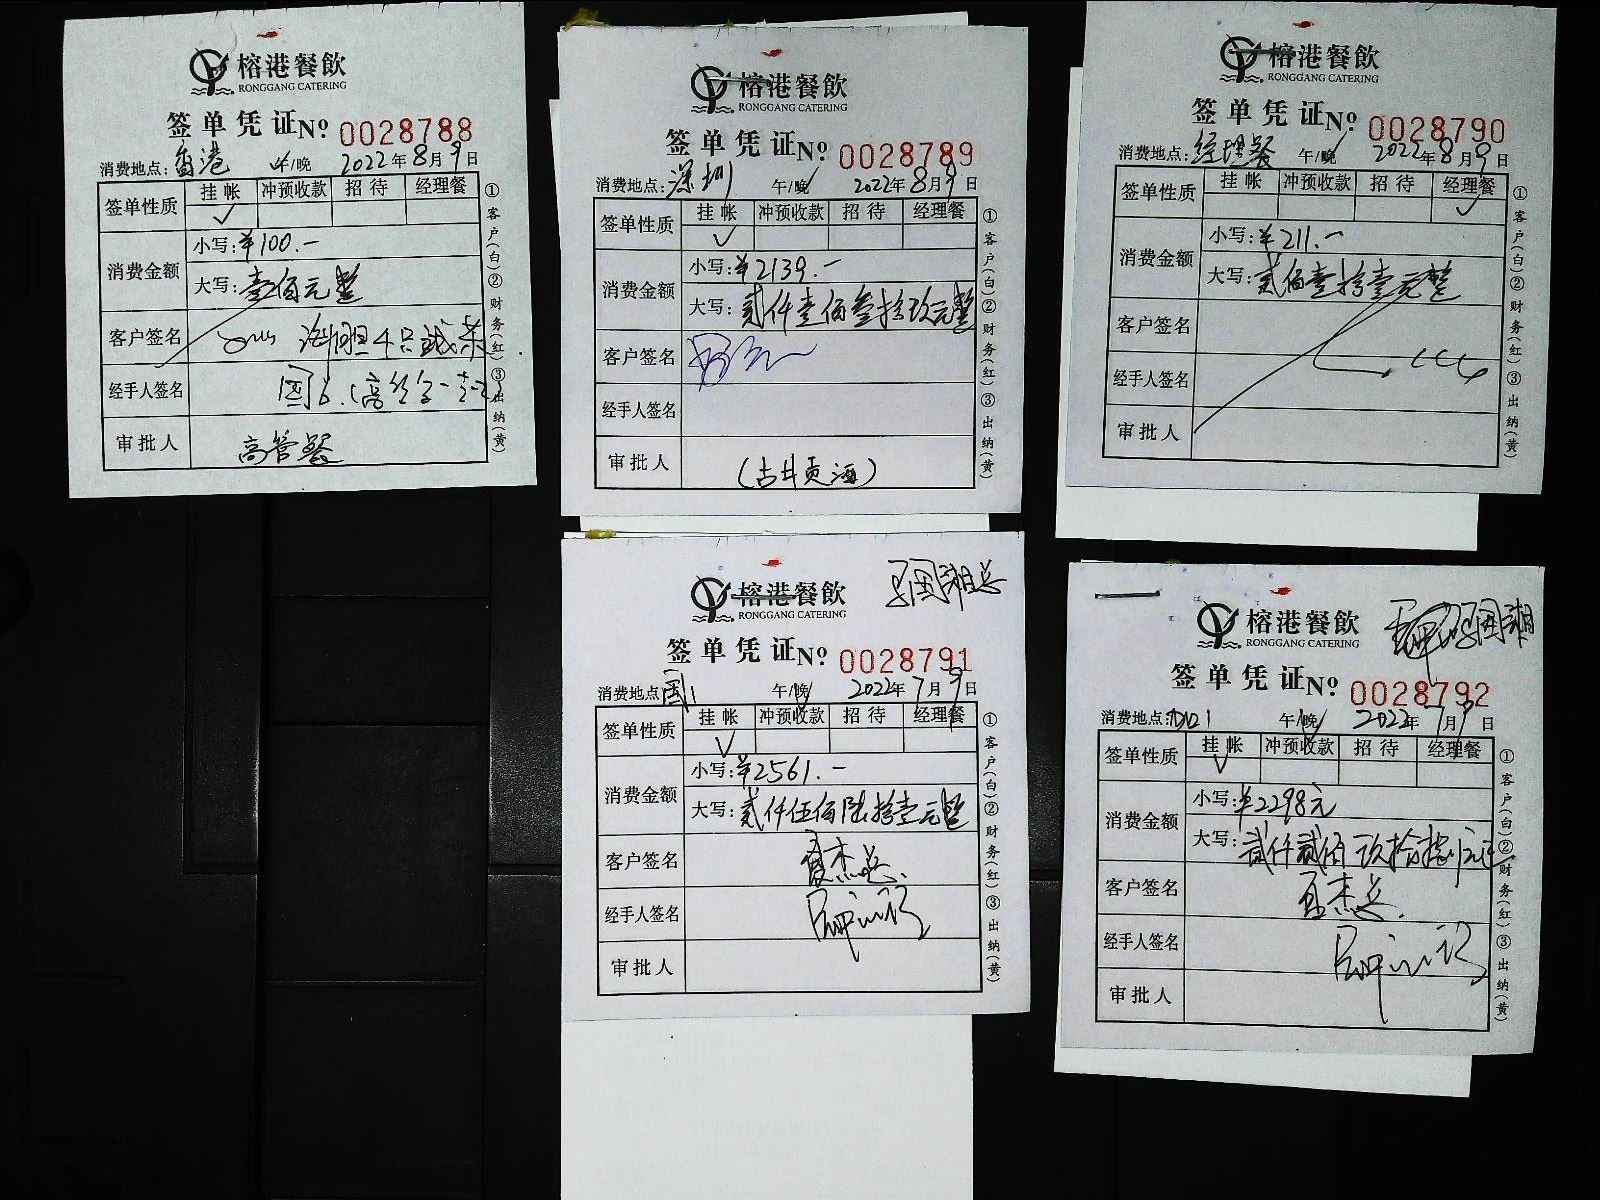 榕港餐飲
RONGGANG CATERING
签单凭证 No 0028788
消费地点: 香港 午/晚 2022年8月9日
签单性质 挂帐 冲预收款 招待 经理餐
✓
消费金额 小写: ¥100.-
大写: 壹佰元整
客户签名
经手人签名
审批人 高管餐
①客户(白)②财务(红)③出纳(黄)
榕港餐飲
RONGGANG CATERING
签单凭证 No 0028789
消费地点: 深圳 午/晚 2022年8月9日
签单性质 挂帐 冲预收款 招待 经理餐
✓
消费金额 小写: ¥2139.-
大写: 贰仟壹佰叁拾玖元整
客户签名
经手人签名
审批人 (古井贡酒)
①客户(白)②财务(红)③出纳(黄)
榕港餐飲
RONGGANG CATERING
签单凭证 No 0028790
消费地点: 经理餐 午/晚 2022年8月9日
签单性质 挂帐 冲预收款 招待 经理餐
✓
消费金额 小写: ¥211.-
大写: 贰佰壹拾壹元整
客户签名
经手人签名
审批人
①客户(白)②财务(红)③出纳(黄)
榕港餐飲
RONGGANG CATERING
签单凭证 No 0028791
消费地点: 午/晚 2022年7月9日
签单性质 挂帐 冲预收款 招待 经理餐
✓
消费金额 小写: ¥2561.-
大写: 贰仟伍佰陆拾壹元整
客户签名 夏杰兵
经手人签名
审批人
①客户(白)②财务(红)③出纳(黄)
榕港餐飲
RONGGANG CATERING
签单凭证 No 0028792
消费地点: 午/晚 2022年7月9日
签单性质 挂帐 冲预收款 招待 经理餐
✓
消费金额 小写: ¥2298元
大写: 贰仟贰佰玖拾捌元正
客户签名 夏杰兵
经手人签名
审批人
①客户(白)②财务(红)③出纳(黄)